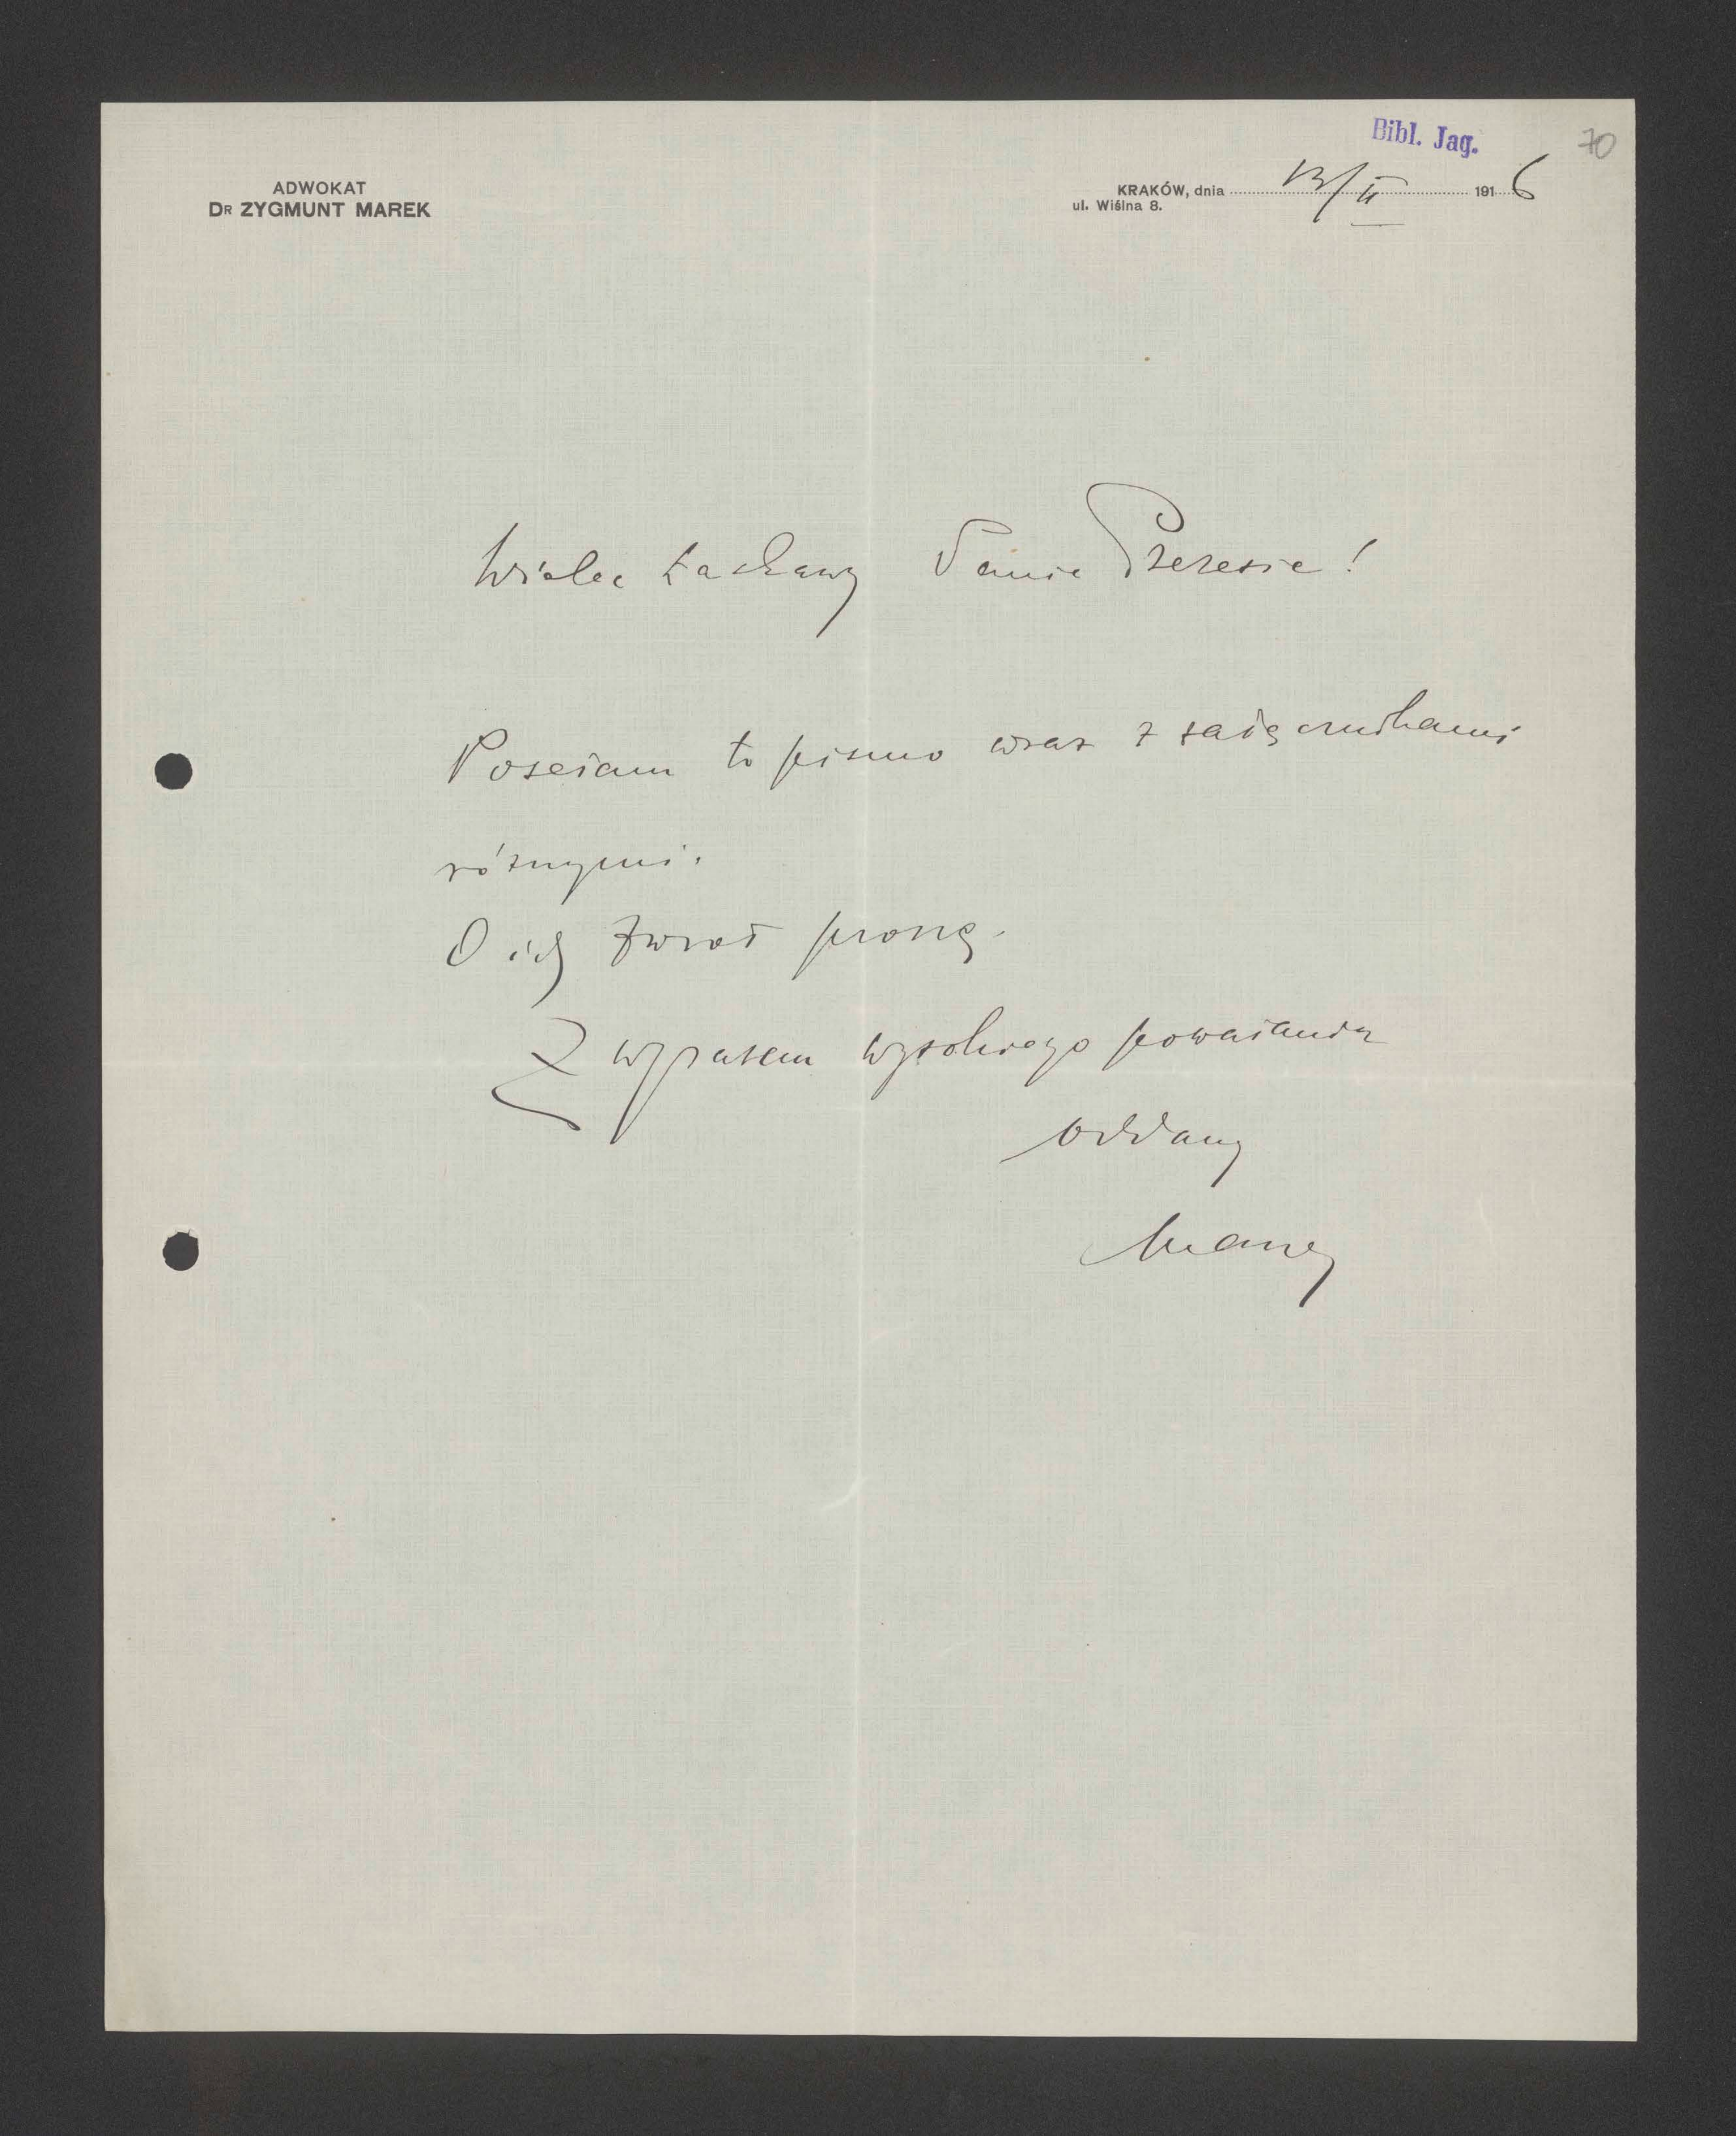 Bibl. Jag.
70
ADWOKAT
DR ZYGMUNT MAREK
KRAKÓW, dnia 13/II 1916
ul. Wiślna 8.
Wielce Łaskawy Panie Prezesie!
Posełam to pismo wraz z załącznikami
różnymi.
O ich zwrot proszę.
Z wyrazem wysokiego poważania
oddany
Marek